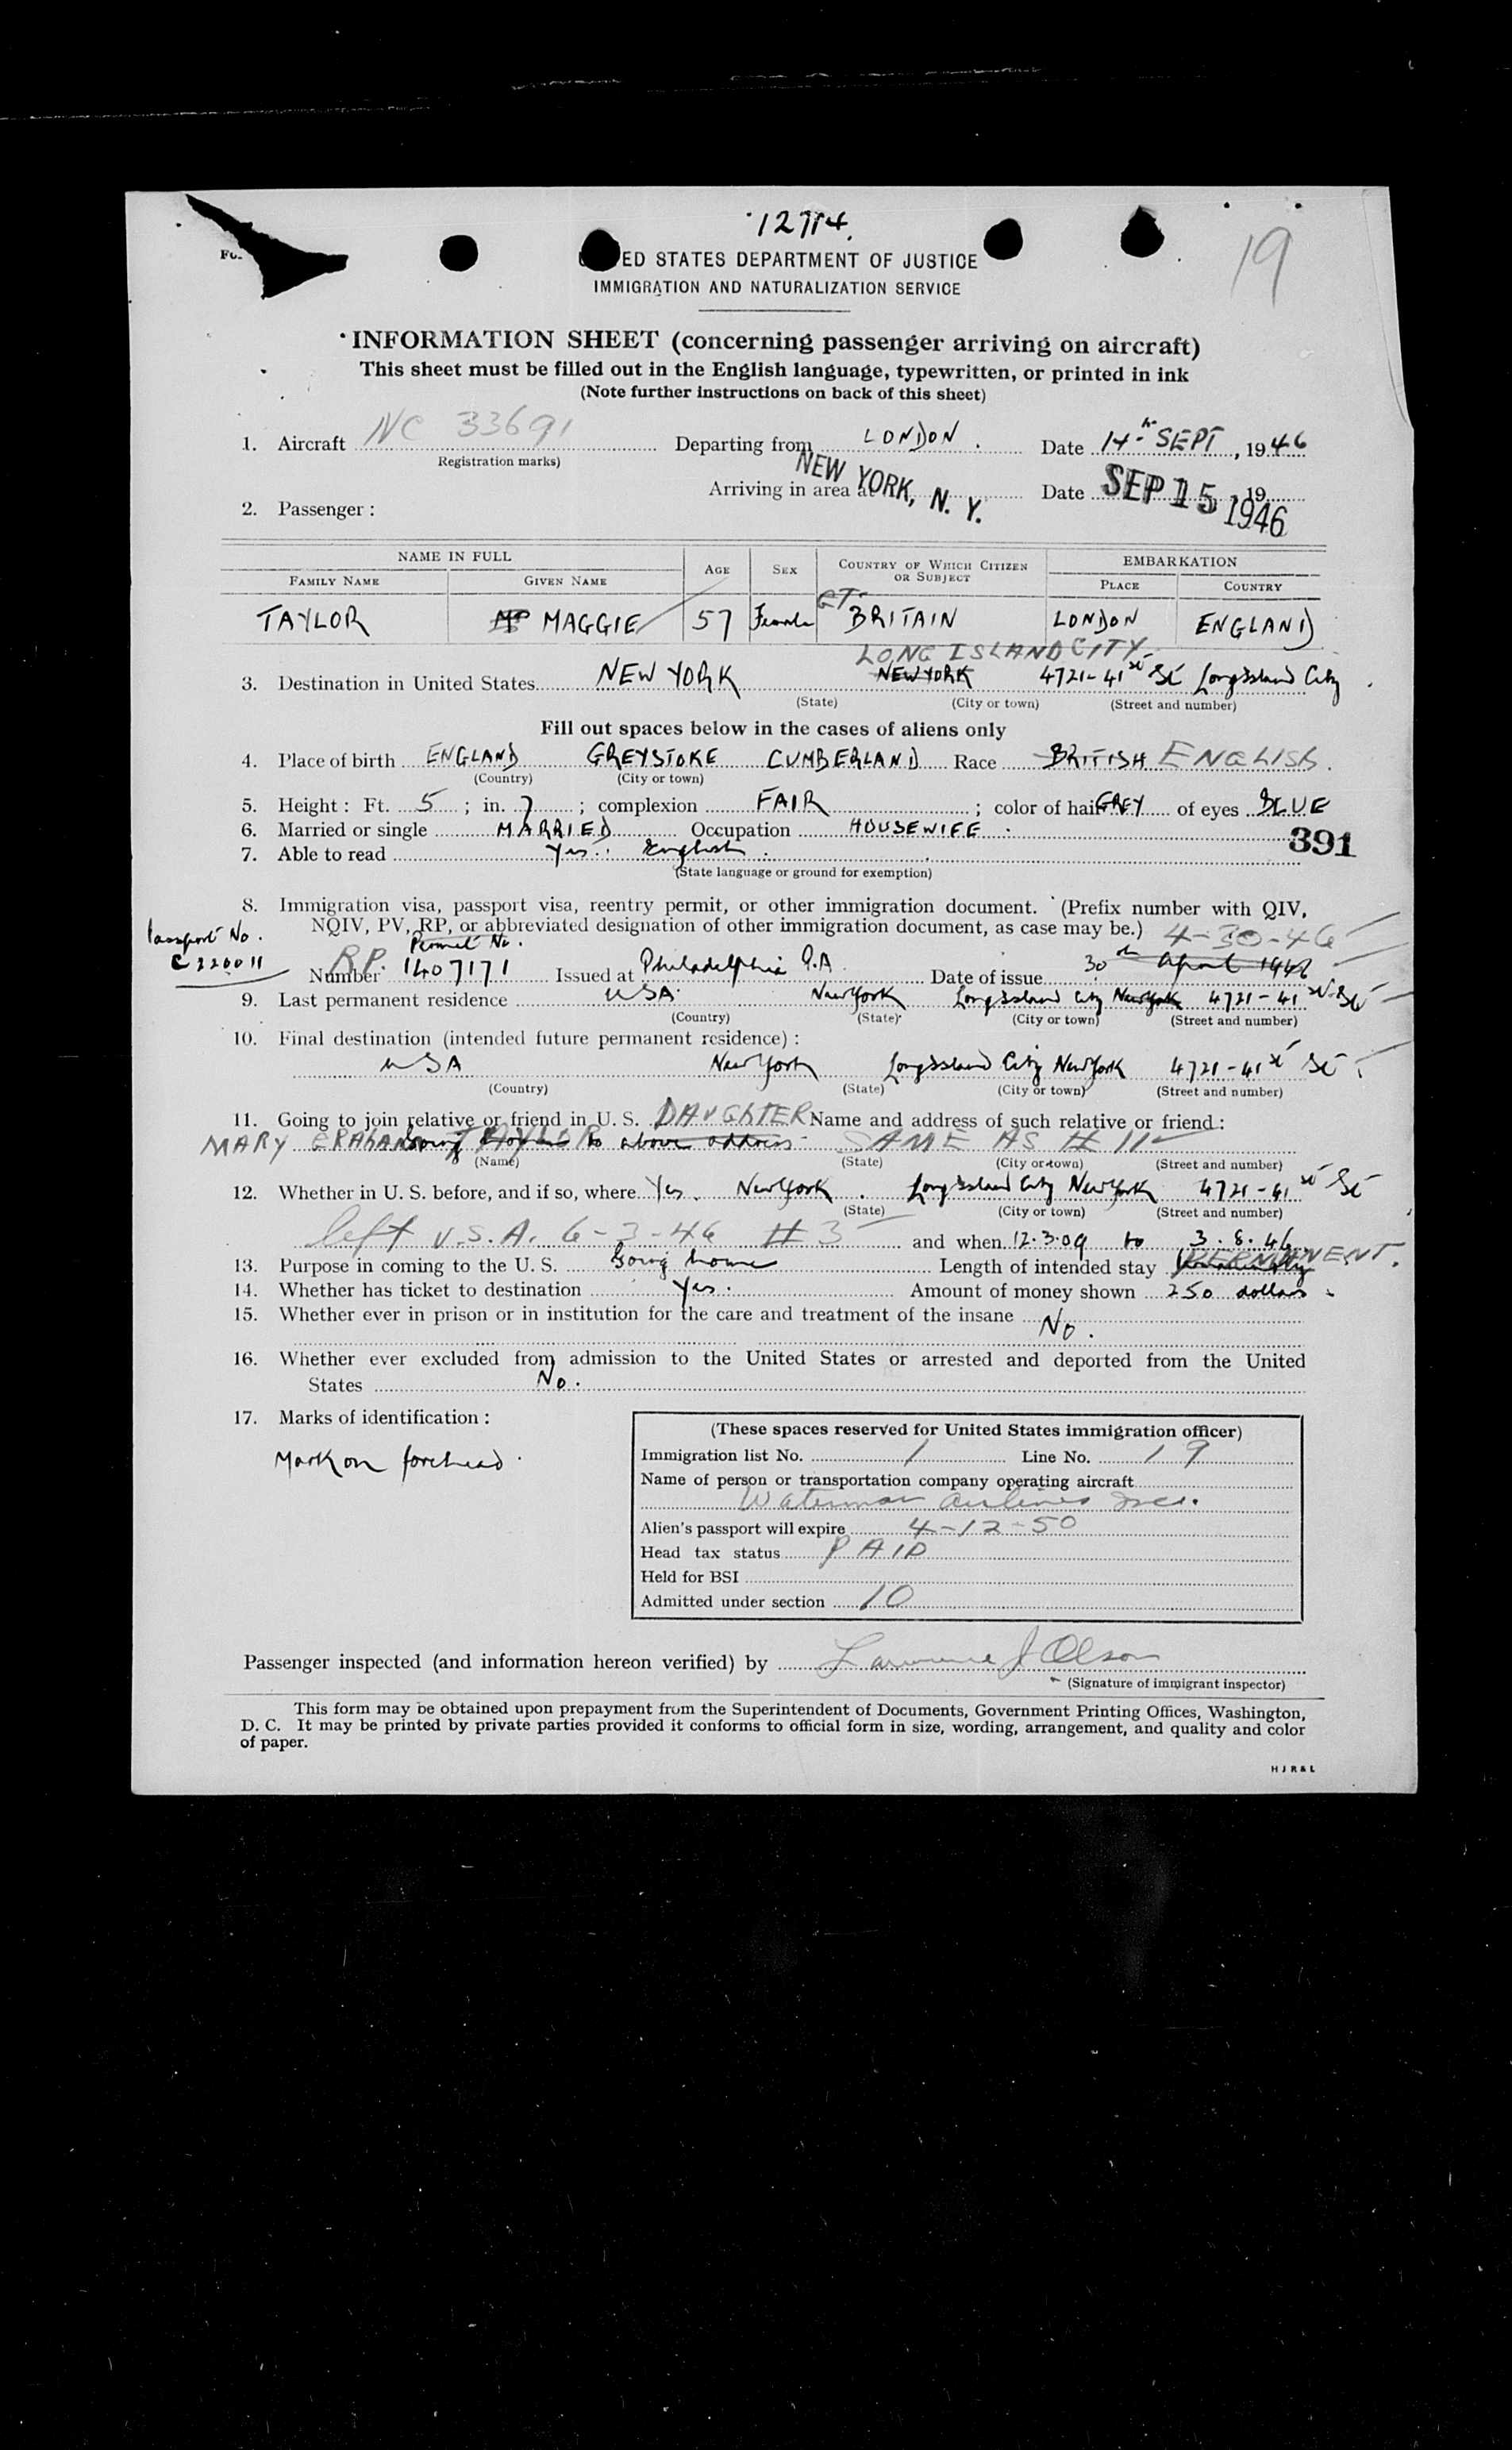 12714.
19
ED STATES DEPARTMENT OF JUSTICE
IMMIGRATION AND NATURALIZATION SERVICE
INFORMATION SHEET (concerning passenger arriving on aircraft)
This sheet must be filled out in the English language, typewritten, or printed in ink
(Note further instructions on back of this sheet)
1. Aircraft NC 33691 Departing from LONDON. Date 14th SEPT, 1946
(Registration marks)
Arriving in area at NEW YORK, N. Y. Date SEP 15 1946 19
2. Passenger:
NAME IN FULL AGE SEX COUNTRY OF WHICH CITIZEN OR SUBJECT EMBARKATION
FAMILY NAME GIVEN NAME PLACE COUNTRY
TAYLOR MAGGIE 57 Female GT. BRITAIN LONDON ENGLAND
LONG ISLAND CITY
3. Destination in United States NEW YORK NEW YORK 4721-41st St Long Island City
(State) (City or town) (Street and number)
Fill out spaces below in the cases of aliens only
4. Place of birth ENGLAND GREYSTOKE CUMBERLAND Race BRITISH ENGLISH.
(Country) (City or town)
5. Height: Ft. 5; in. 7; complexion FAIR; color of hair GREY of eyes BLUE
6. Married or single MARRIED Occupation HOUSEWIFE.
391
7. Able to read Yes. English.
(State language or ground for exemption)
8. Immigration visa, passport visa, reentry permit, or other immigration document. (Prefix number with QIV,
NQIV, PV, RP, or abbreviated designation of other immigration document, as case may be.) 4-30-46
Passport No. C 220011
Permit No.
Number RP. 1407171 Issued at Philadelphia P.A. Date of issue 30th April 1946
9. Last permanent residence USA New York Long Island City New York 4721-41st St
(Country) (State) (City or town) (Street and number)
10. Final destination (intended future permanent residence):
USA New York Long Island City New York 4721-41st St
(Country) (State) (City or town) (Street and number)
11. Going to join relative or friend in U. S. DAUGHTER Name and address of such relative or friend:
MARY GRAHAM TAYLOR to above address SAME AS # 11
(Name) (State) (City or town) (Street and number)
12. Whether in U. S. before, and if so, where Yes. New York. Long Island City New York 4721-41st St
(State) (City or town) (Street and number)
left U.S.A. 6-3-46 # 3 and when 12.3.09 to 3.8.46
13. Purpose in coming to the U. S. Going home Length of intended stay PERMANENT.
14. Whether has ticket to destination Yes. Amount of money shown 250 dollars.
15. Whether ever in prison or in institution for the care and treatment of the insane No.
16. Whether ever excluded from admission to the United States or arrested and deported from the United
States No.
17. Marks of identification:
Mark on forehead.
(These spaces reserved for United States immigration officer)
Immigration list No. 1 Line No. 19
Name of person or transportation company operating aircraft
Waterman Airlines Inc.
Alien's passport will expire 4-12-50
Head tax status PAID
Held for BSI
Admitted under section 10
Passenger inspected (and information hereon verified) by Lawrence J Olson
(Signature of immigrant inspector)
This form may be obtained upon prepayment from the Superintendent of Documents, Government Printing Offices, Washington,
D. C. It may be printed by private parties provided it conforms to official form in size, wording, arrangement, and quality and color
of paper.
H J R & L